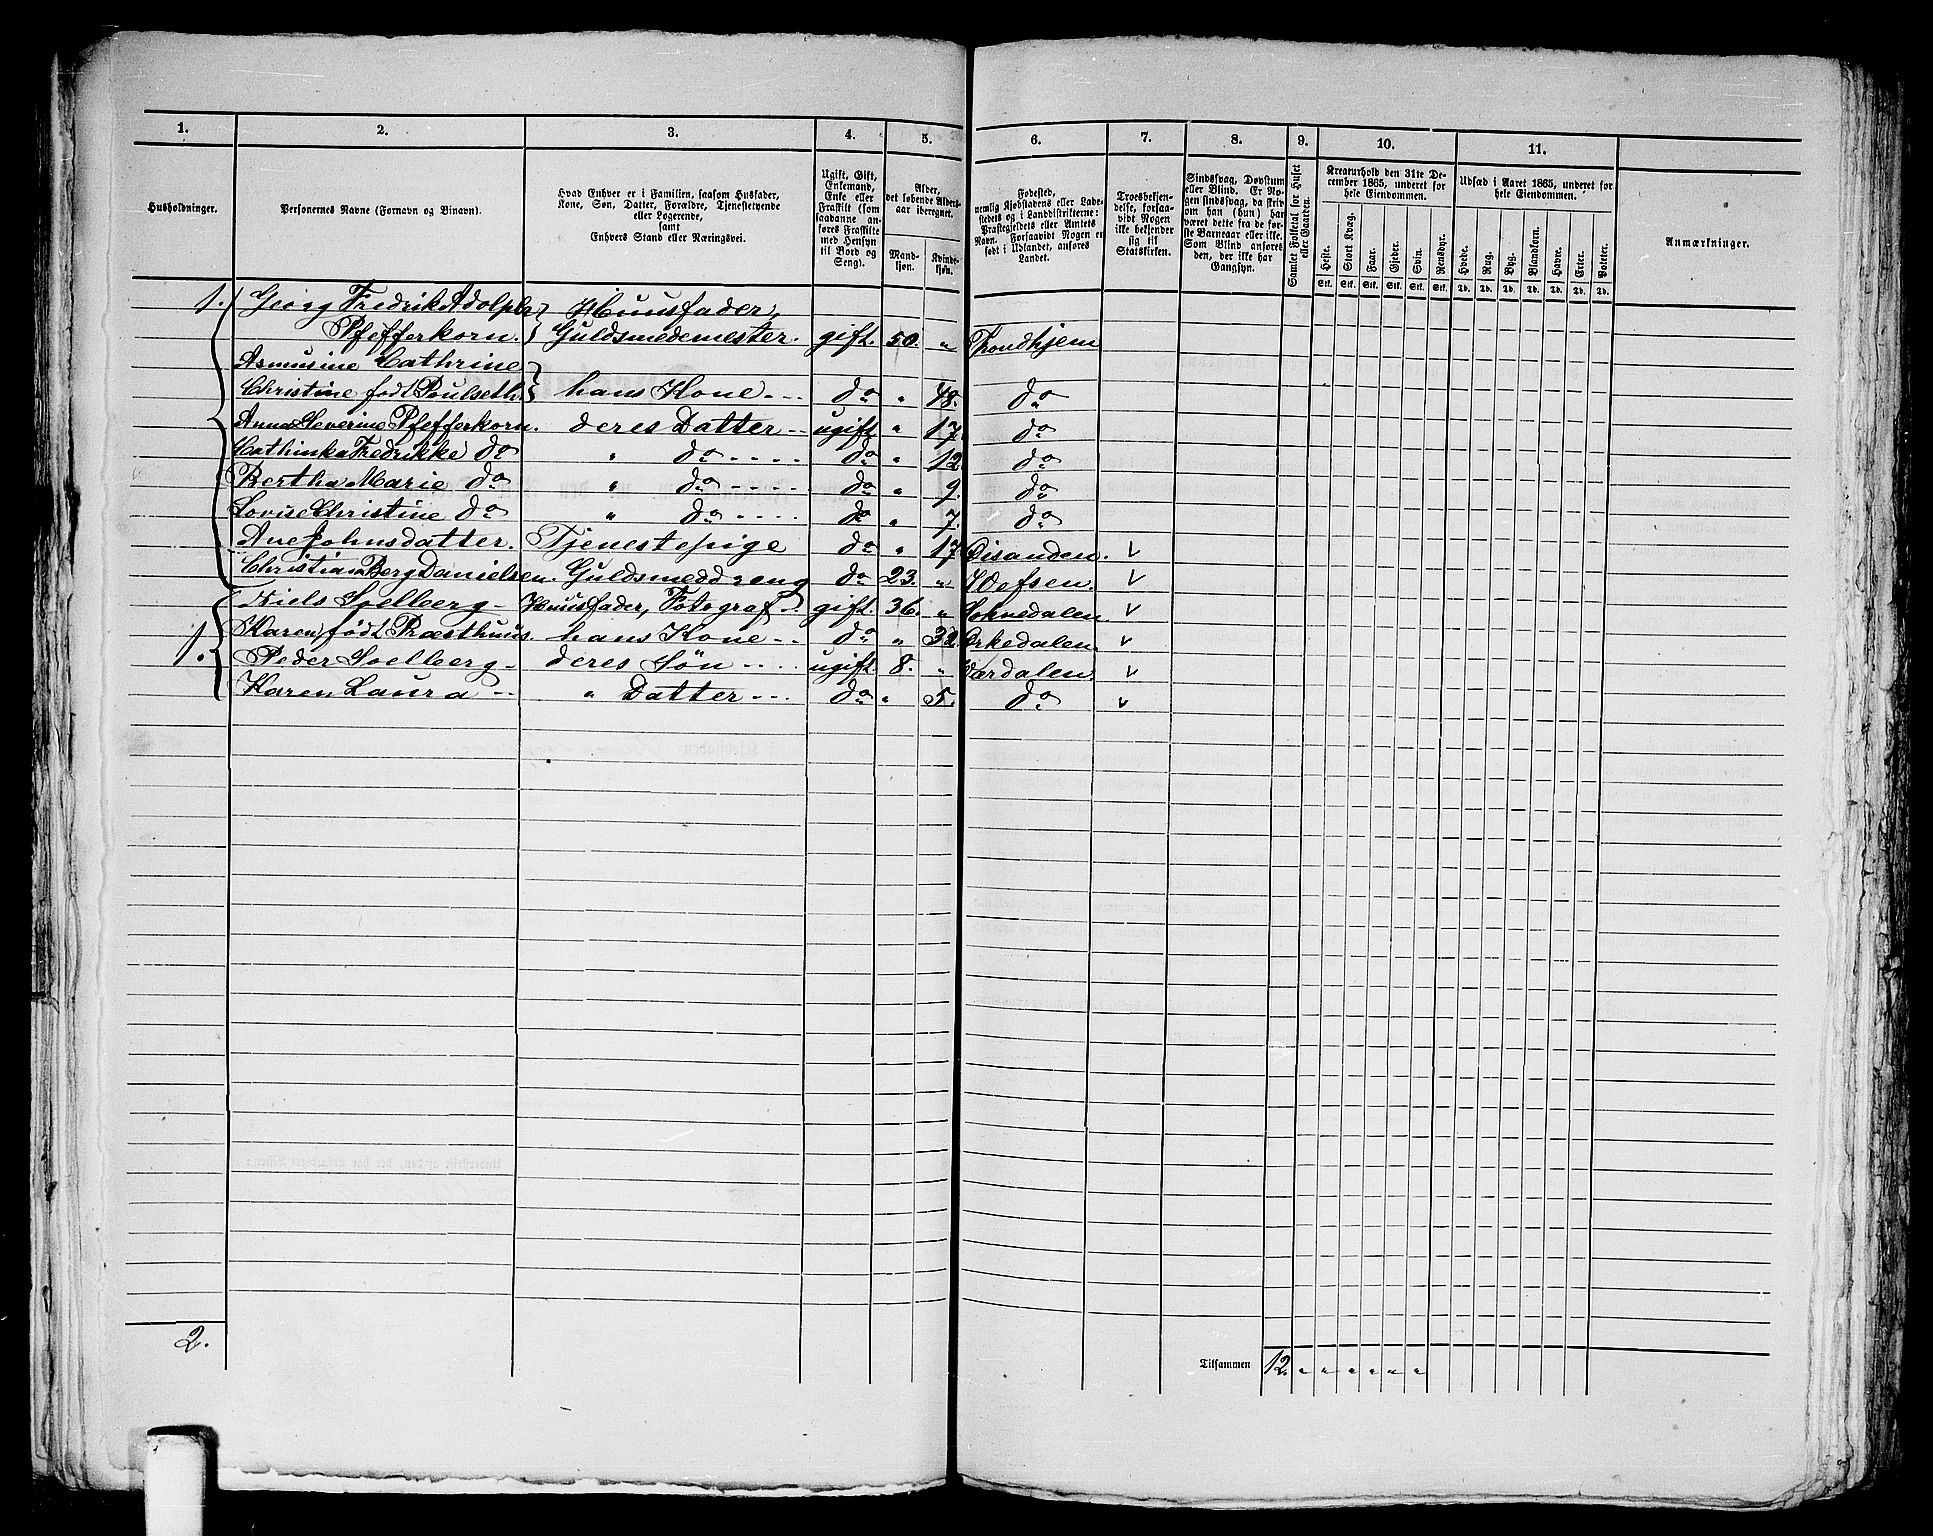 1. 2. 3. 4. 5. 6. 7. 8. 9. 10. 11.
Husholdninger.
Personernes Navne (Fornavn og Binavn).
Hvad Enhver er i Familien, saasom Husfader,
Kone, Søn, Datter, Forældre, Tjenestetyende
eller Logerende,
samt
Enhvers Stand eller Næringsvei.
Ugift, Gift,
Enkemand,
Enke eller
Fraskilt (som
saadanne an-
føres Fraskilte
med Hensyn
til Bord og
Seng).
Alder,
det løbende Alders-
aar iberegnet.
Mand-
kjøn.
Kvinde-
kjøn.
Fødested,
nemlig Kjøbstadens eller Lade-
stedets og i Landdistrikterne:
Præstegjeldets eller Amtets
Navn. Forsaavidt Nogen er
født i Udlandet, anføres
Landet.
Troesbekjen-
delse, forsaa-
vidt Nogen
ikke bekjender
sig til
Statskirken.
Sindssvag, Døvstum
eller Blind. Er No-
gen sindssvag, da skriv
om han (hun) har
været dette fra de før-
ste Barneaar eller ikke.
Som Blind anføres
den, der ikke har
Gangsyn.
Samlet Folketal for Huset
eller Gaarden.
Kreaturhold den 31te De-
cember 1865, underet for
hele Eiendommen.
Heste. Stort Kvæg. Faar. Gjeder. Svin. Rensdyr.
Stk. Stk. Stk. Stk. Stk. Stk.
Udsæd i Aaret 1865, underet for
hele Eiendommen.
Hvede. Rug. Byg. Blandkorn. Havre. Erter. Poteter.
Td. Td. Td. Td. Td. Td. Td.
Anmærkninger.
1. Georg Fredrik Adolph Huusfader,
Pfefferkorn. Guldsmedemester. gift. 50. " Trondhjem
Asmusine Cathrine
Christine født Poulseth. hans Kone --- do " 48. do
Anna Severine Pfefferkorn. deres Datter -- ugift " 17. do
Cathinka Fredrikke do " do ---- do " 12. do
Bertha Marie do " do ---- do " 9. do
Lovise Christine do " do ---- do " 7. do
Ane Johnsdatter. Tjenestepige do " 17 v
Christian Berg Danielsen. Guldsmeddreng do 23. " Vefsen. v
Niels Soelberg - Huusfader, Fotograf - gift. 36. " Soknedalen. v
1. Karen født Præsthuus. hans Kone -- do " 32. Orkedalen. v
Peder Soelberg - deres Søn --- ugift. 8. " Værdalen. v
Karen Laura -- " Datter --- do " 5. do v
2.
Tilsammen 12. " " " " " "